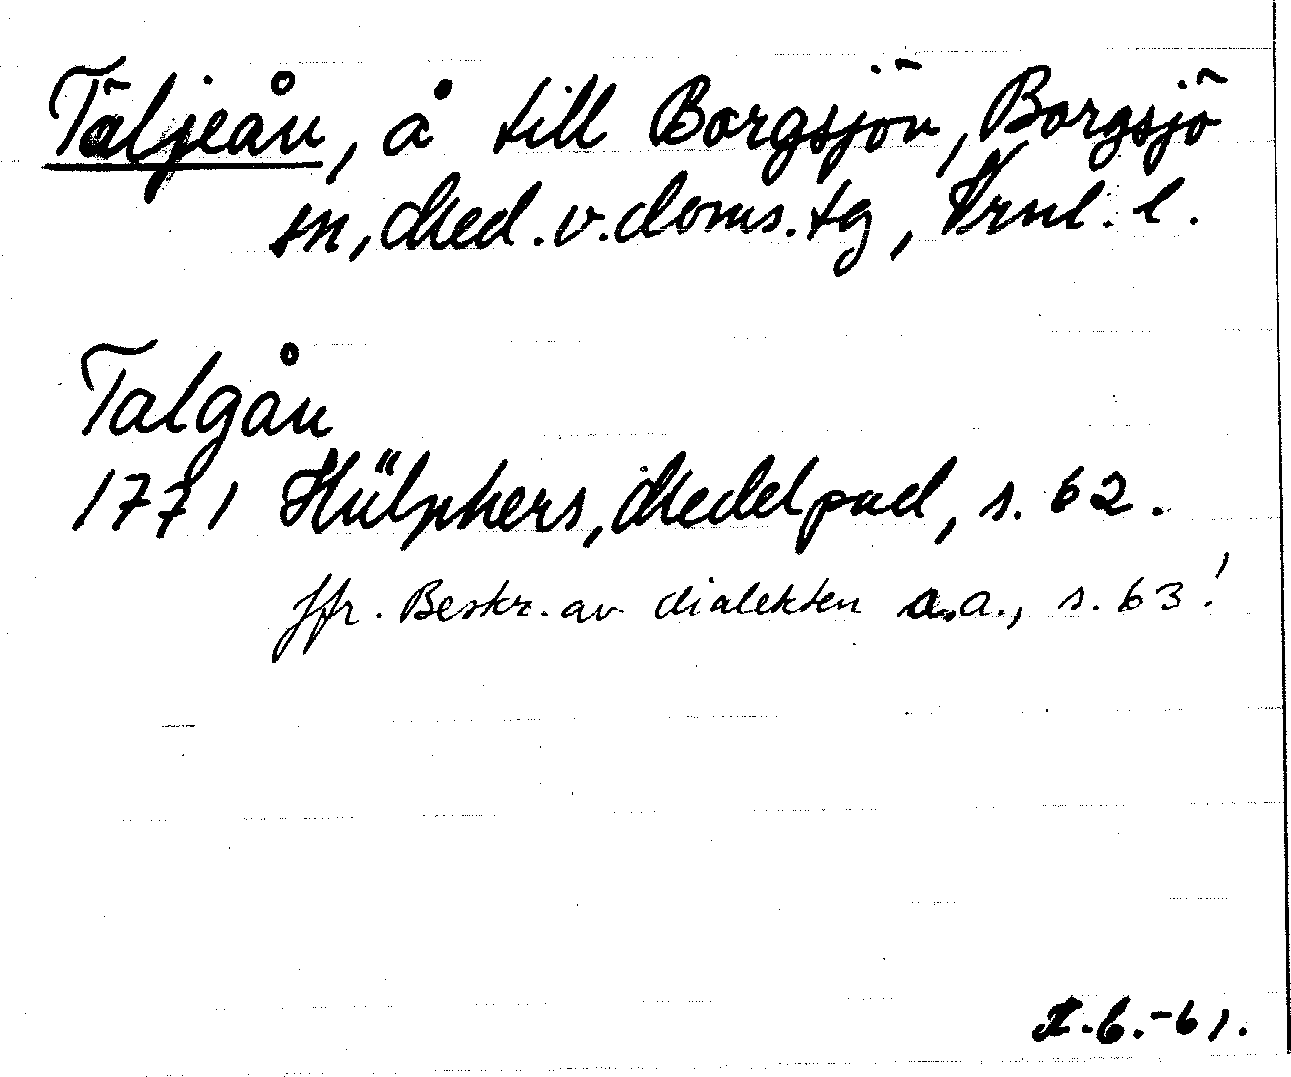 Täljeån, å till Borgsjön, Borgsjö
sn, Med. v. doms. tg, Vrnl. l.
Talgån
1771 Hülphers, Medelpad, s. 62.
Jfr. Beskr. av dialekten a.a., s. 63!
.6.-61.